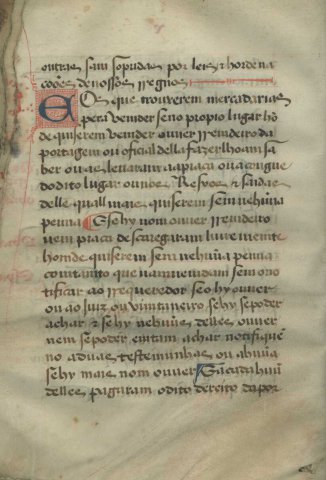 outras sam sopridas por leis & hordena
coões de nossos rregnos
E os que trouverem mercadarias
pera vender se no propio lugar ho
de quiserem vender ouver rrendeiro da
portagem ou oficial della fazerlhoam sa
ber ou as levaram aa praca ou acougue
do dito lugar ou nos Resyos & saidas
delle quall mais quiserem sem nehūa
penna E se hy nom ouver rrendeiro
nem praca descaregaram livremente
homde quiserem sem nehūa penna
comtanto que nam vendam sem no
tificar ao rrequeredor se o hy ouver
ou ao Juiz ou vintaneiro se hy se poder
achar & se hy nehuūs delles ouver
nem se poder emtam achar notifiquē
no a duas testeminhas ou a hūua
se hy mais nom ouver E a cada huū
delles pagaram o dito dereito da por